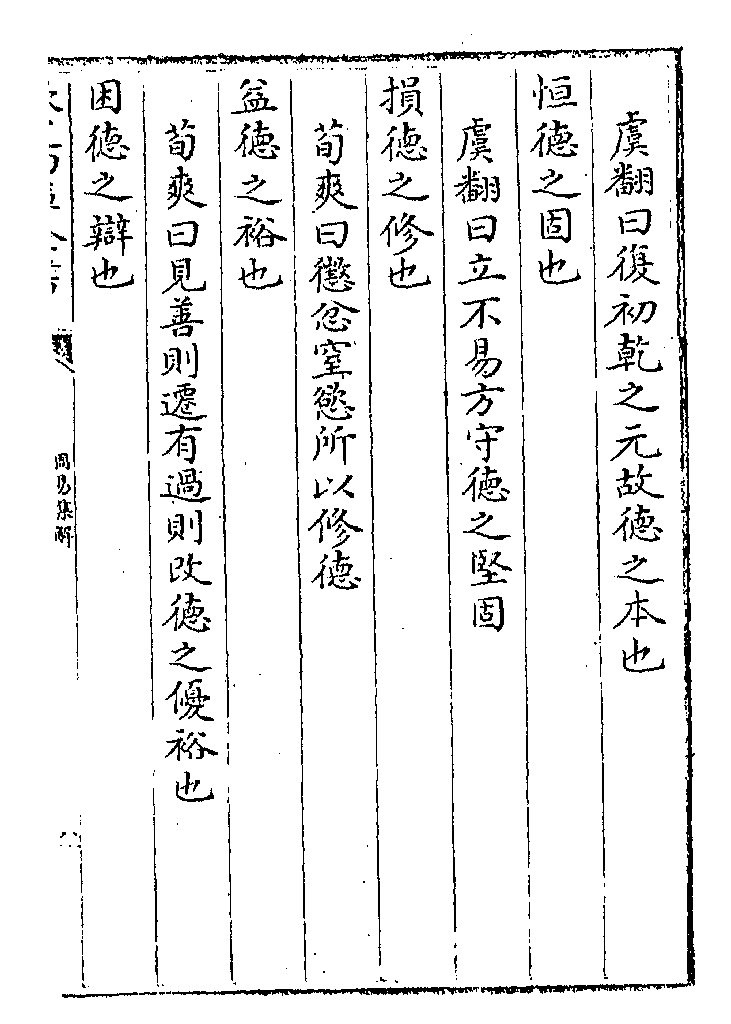 虞翻曰復初乾之元故徳之本也
恒徳之固也
虞翻曰立不易方守徳之堅固
損徳之修也
荀爽曰懲忿窒慾所以修徳
益徳之裕也
荀爽曰見善則遷有過則改徳之優裕也
困徳之辯也
周易集解